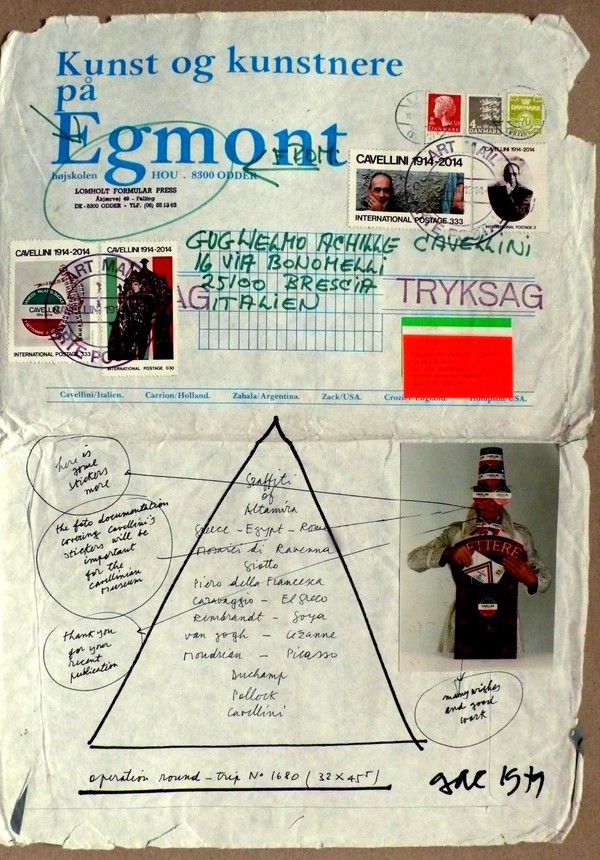 Kunst og kunstnere
på
Egmont
højskolen HOU . 8300 ODDER
FROM
LOMHOLT FORMULAR PRESS
Åkjærvej 49 - Falling
DK-8300 ODDER - TLF.
DANMARK
DANMARK
DANMARK
CAVELLINI 1914-2014
INTERNATIONAL POSTAGE 333
CAVELLINI 1914-2014
INTERNATIONAL POSTAGE
ART MAIL
GUGLIELMO ACHILLE CAVELLINI
16 VIA BONOMELLI
25100 BRESCIA
ITALIEN
CAVELLINI 1914-2014
CAVELLINI
INTERNATIONAL POSTAGE 333
CAVELLINI 1914-2014
INTERNATIONAL POSTAGE
ART MAIL
TRYKSAG
Cavellini/Italien. Carrion/Holland. Zabala/Argentina. Zack/USA. Crozier/England. Hompson/USA.
here is
some
stickers
more
the foto documentation
covering Cavellini's
stickers will be
important
for the
Cavellinian
Museum
thank you
for your
recent
publication
Graffiti
of
Altamira
Greece - Egypt - Roma
Mosaici di Ravenna
Giotto
Piero della Francesca
Caravaggio - El Greco
Rembrandt - Goya
van gogh - Cézanne
Mondrian - Picasso
Duchamp
Pollock
Cavellini
LETTERE
many wishes
and good
work
operation round-trip No 1680 (32 x 45)
GAC 1979